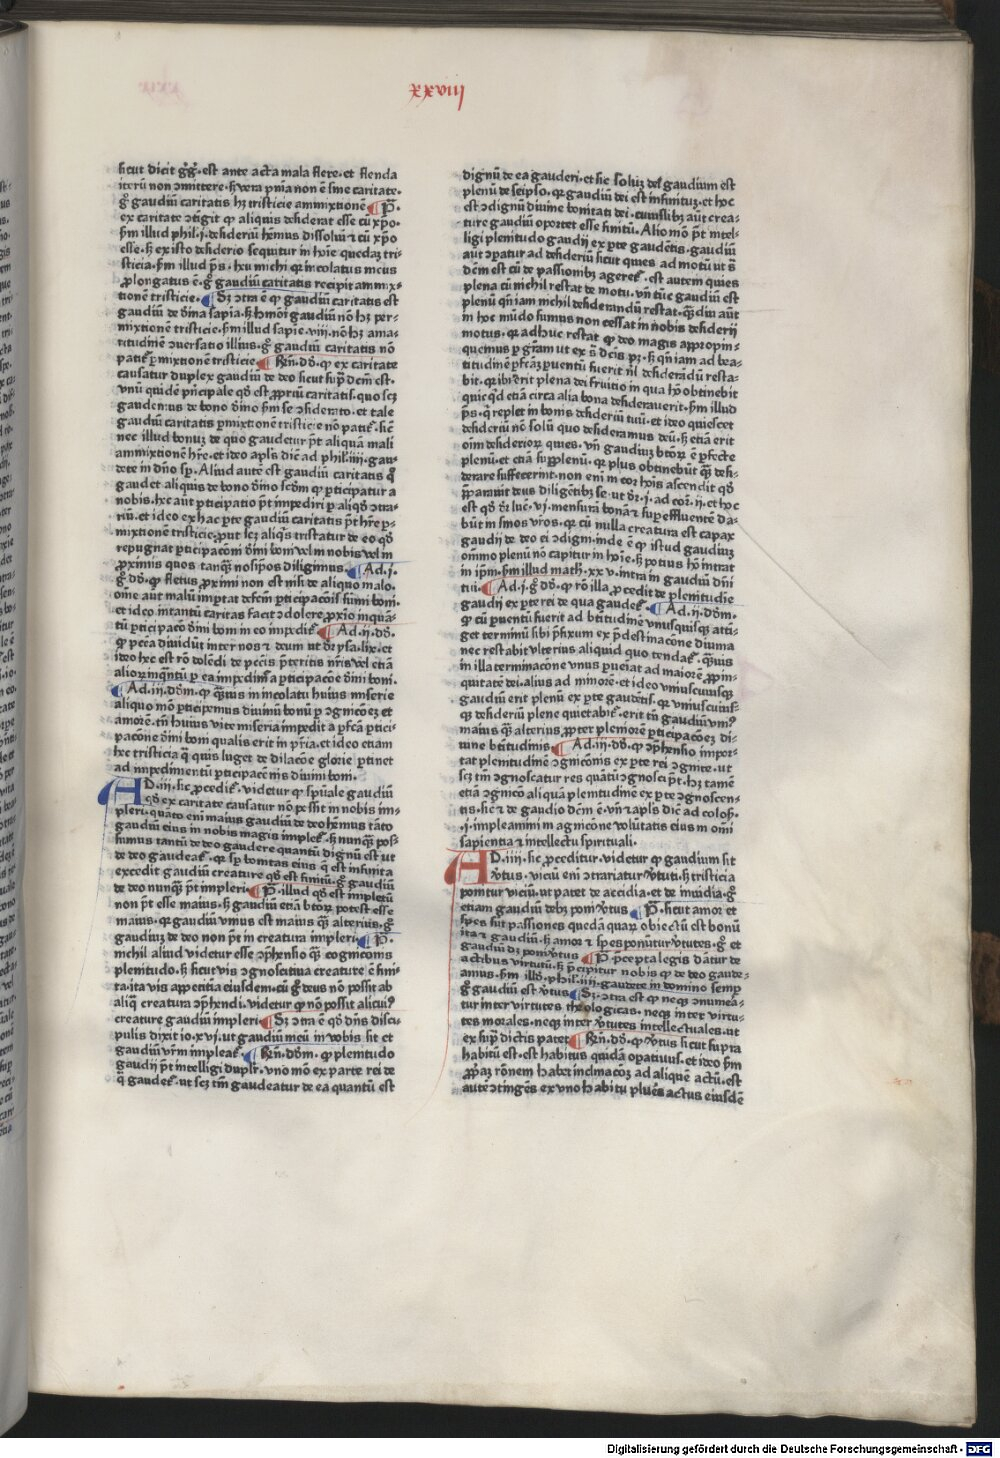 xxviii
sicut dicit g̃g̃.est ante acta mala flere.et flenda
iterũ non ɔmittere.ß vera pñia non ẽ sine caritate.
g̊ gaudiũ caritatis hꝫ tristicie ammixtionẽ ¶ P̃.
ex caritate ɔtigit ꝙ aliquis desiderat esse cũ xp̃o.
ẜm illud phil.j.desideriũ hẽmus dissolui ⁊ cũ xp̃o
esse.ß ex isto desiderio sequitur in hoĩe quedaꝫ tri⸗
sticia.ẜm illud p̃s.heu michi ꝙ incolatus meus
ꝓlongatus ẽ.g̊ gaudiũ caritatis recipit ammix⸗
tionẽ tristicie. ¶ Sꝫ ɔtra ẽ ꝙ gaudiũ caritatis est
gaudiũ de diuina sapia.ß hmõi gaudiũ nõ hꝫ per⸗
mixtionẽ tristicie.ẜm illud sapie.viii.nõ hꝫ ama⸗
ritudinẽ ɔuersatio illius.g̊ gaudiũ caritatis nõ
patit̃ ꝑmixtionẽ tristicie. ¶ Rñ.dõ.ꝙ ex caritate
causatur duplex gaudiũ de deo sicut sup̃ dcm̃ est.
vnũ quidẽ pñcipale qð est ꝓpriũ caritatis.quo scꝫ
gaudemus de bono diuino ẜm se ɔsiderato.et tale
gaudiũ caritatis ꝑmixtionẽ tristicie nõ patit̃.sic̃
nec illud bonuꝫ de quo gaudetur p̃t aliquã mali
ammixtionẽ hr̃e.et ideo apl̃s dic̃ ad phil.iiii.gau⸗
dete in dño sp̃.Aliud autẽ est gaudiũ caritatis q̊
gaudet aliquis de bono diuino ẜcdm ꝙ ꝑticipatur a
nobis.hec aũt ꝑticipatio p̃t impediri ꝑ aliqð ɔtra⸗
riũ.et ideo ex hac ꝑte gaudiũ caritatis p̃t hr̃e ꝑ⸗
mixtionẽ tristicie.ꝓut scꝫ aliqis tristatur de eo qð
repugnat ꝑticipacõni diuini boni vel in nobis vel in
ꝓximis quos tanqꝫ nosipos diligimus. ¶ Ad.j.
g̊.dõ.ꝙ fletus ꝓximi non est nisi de aliquo malo.
omẽ aut malũ importat defem̃ ꝑticipacõis summi boni.
et ideo intantũ caritas facit ɔdolere ꝓxio inquã⸗
tũ ꝑticipaco diuini boni in eo impedit̃ ¶ Ad.ii.dõ.
ꝙ pcc̃a diuidũt inter nos ⁊ deum ut dr̃ ysa.lix.et
ideo hec est rõ dolendi de pcc̃is p̃teritis nr̃is vel etiã
alioꝝ inqñtũ ꝑ ea impedimr̃ a ꝑticipacõe diuini boni.
¶ Ad.iii.dõm.ꝙ qꝫuis in incolatu huius miserie
aliquo mõ ꝑticipemus diuinũ bonũ ꝑ ɔgnicõeꝫ et
amorẽ.tñ huius vite miseria impedit a ꝑfc̃a ꝑtici⸗
pacõne diuini boni qualis erit in pr̃ia.et ideo etiam
hec tristicia q̃ quis luget de dilacõe glorie ꝑtinet
ad impedimentũ ꝑticipacõnis diuini boni.
AD.iii.sic ꝓcedit̃.videtur ꝙ spũale gaudiũ
qð ex caritate causatur nõ possit in nobis im⸗
pleri.quãto eni maius gaudiũ de deo hẽmus tãto
gaudiũ eius in nobis magis implet̃.ß nunqꝫ pos⸗
sumus tantũ de deo gaudere quantũ dignũ est ut
de deo gaudeat̃.qꝛ sp̃ bonitas eius q̃ est infinita
excedit gaudiũ creature qð est finitũ.g̊ gaudiũ
de deo nunqꝫ p̃t impleri. ¶ P̃.illud qð est impletũ
non p̃t esse maius.ß gaudiũ etiã btoꝝ potest esse
maius.qꝛ gaudiũ vnius est maius qꝫ alterius.g̊
gaudiuꝫ de deo non p̃t in creatura impleri. ¶ P̃.
nichil aliud videtur esse ɔp̃hensio qꝫ cognicõnis
plenitudo.ß sicut vis ɔgnoscitiua creature ẽ fini⸗
ta.ita vis appetitia eiusdem.cũ g̊ deus nõ possit ab
aliq̃ creatura ɔp̃hendi.videtur ꝙ nõ possit alicui9
creature gaudiũ impleri. ¶ Sꝫ ɔtra ẽ qð dñs disci⸗
pulis dixit io.xvi.ut gaudiũ meũ in vobis sit et
gaudiũ vr̃m impleat̃. ¶ Rñ.dõm.ꝙ plenitudo
gaudij p̃t intelligi duplr̃.vno mõ ex parte rei de
q̃ gaudet̃.ut scꝫ tm̃ gaudeatur de ea quantũ est
dignũ de ea gauderi.et sic solus dei gaudium est
plenũ de seipso.qꝛ gaudiũ dei est infinituꝫ.et hoc
est ɔdignũ diuine bonitati dei.cuiuslibꝫ aũt crea⸗
ture gaudiũ oportet esse finitũ.Alio mõ p̃t intel⸗
ligi plenitudo gaudij ex ꝑte gaudẽtis.gaudiũ
aũt ɔpatur ad desideriũ sicut quies ad motũ ut s̃
dẽm est cũ de passionibꝫ ageret̃.est autem quies
plena cũ nichil restat de motu.vñ tũc gaudiũ est
plenũ qñ iam nichil desiderandũ restat.qꝫdiu aũt
in hoc mũdo sumus non cessat in nobis desiderij
motus.qꝛ adhuc restat ꝙ deo magis appropin⸗
quemus ꝑ gr̃am ut ex s̃ dc̃is pꝫ.ß qñ iam ad bea⸗
titudinẽ ꝑfc̃aꝫ ꝑuentũ fuerit nl̃ desiderãdũ resta⸗
bit.qꝛ ibi erit plena dei fruitio in qua hõ obtinebit
quicqd̃ etiã circa alia bona desiderauerit.ẜm illud
p̃s.q̃ replet in bonis desideriũ tuũ.et ideo quiescet
desideriũ nõ solũ quo desideramus deũ.ß etiã erit
oĩm desiderioꝝ quies.vñ gaudiuꝫ btoꝝ ẽ ꝑfecte
plenũ.et etiã sup̃plenũ.qꝛ plus obtinebũt qꝫ desi⸗
derare suffecerint.non eni in cor hoĩs ascendit qð
p̃parauit deus diligẽtibꝫ se.ut dr̃.j.ad coꝝ.ii.et hoc
est qð dr̃ luc̃.vj.mensurã bonã ⁊ sup̃ effluentẽ da⸗
bũt in sinus vr̃os.qꝛ cũ nulla creatura est capax
gaudij de deo ei ɔdigni.inde ẽ ꝙ istud gaudiuꝫ
omnĩo plenũ nõ capitur in hoĩe.ß potius hõ intrat
in ip̃m.ẜm illud math̃.xxv.intra in gaudiũ dñi
tui. ¶ Ad.j.g̊ dõ.ꝙ rõ illa ꝓcedit de plenitudie
gaudij ex ꝑte rei de qua gaudet̃. ¶ Ad.ii.dõm.
ꝙ cũ ꝑuentũ fuerit ad btitudinẽ vnusquisqꝫ atti⸗
get terminũ sibi p̃fixum ex p̃destinacõne diuina
nec restabit vlterius aliquid quo tendat̃.qꝫuis
in illa terminacõne vnus ꝑueiat ad maiorẽ ꝓpin⸗
quitatẽ dei.alius ad minorẽ.et ideo vniuscuiusqꝫ
gaudiũ erit plenũ ex ꝑte gaudẽtis.qꝛ vniuscuius⸗
qꝫ desideriũ plene quietabit̃.erit tñ gaudiũ vni9
maius qꝫ alterius ꝓpter pleniorẽ ꝑticipacõeꝫ di⸗
uine btitudinis ¶ Ad.iii.dõ.ꝙ ɔp̃hensio impor⸗
tat plenitudinẽ ɔgnicõnis ex ꝑte rei ɔgnite.ut
scꝫ tm̃ ɔgnoscatur res quãtũ ɔgnosci p̃t.hꝫ tamẽ
etiã ɔgnicõ aliquã plenitudinẽ ex ꝑte ɔgnoscen⸗
tis.sic̃ ⁊ de gaudio dcm̃ ẽ.vñ ⁊ apl̃s dic̃ ad coloß.
.j.impleamini in agnicõne volũtatis eius in omĩ
sapientia ⁊ intellectu spirituali.
AD.iiii.sic ꝓceditur.videtur ꝙ gaudium sit
v̓tus.viciũ eni ɔtrariatur v̓tuti.ß tristicia
ponitur viciũ.ut patet de accidia.et de inuidia.g̊
etiam gaudiũ debꝫ poni v̓tus ¶ P̃.sicut amor et
spes sũt passiones quedã quaꝝ obiectũ est bonũ
ita ⁊ gaudiũ.ß amor ⁊ spes ponũtur v̓tutes.g̊ et
gaudiũ dꝫ poni v̓tus ¶ P̃.p̃cepta legis dãtur de
actibus virtutũ.ß p̃cipitur nobis ꝙ de deo gaude⸗
amus.ẜm illð.phil.iiii.gaudete in domino semꝑ
g̊ gaudiũ est v̓tus. ¶ Sꝫ ɔtra est ꝙ neqꝫ ɔnumea⸗
tur inter virtutes theologicas.neqꝫ inter virtu⸗
tes morales.neqꝫ inter v̓tutes intellectuales.ut
ex sup̃ dictis patet ¶ Rñ.dõ.ꝙ v̓tus sicut supra
habitũ est.est habitus quidã opatiuus.et ideo ẜm
ꝓp̃aꝫ rõnem habet inclinacõeꝫ ad aliquẽ actũ.est
autẽ ɔtingẽs ex vno habitu plures actus eiusdẽ
Digitalisierung gefördert durch die Deutsche Forschungsgemeinschaft - DFG